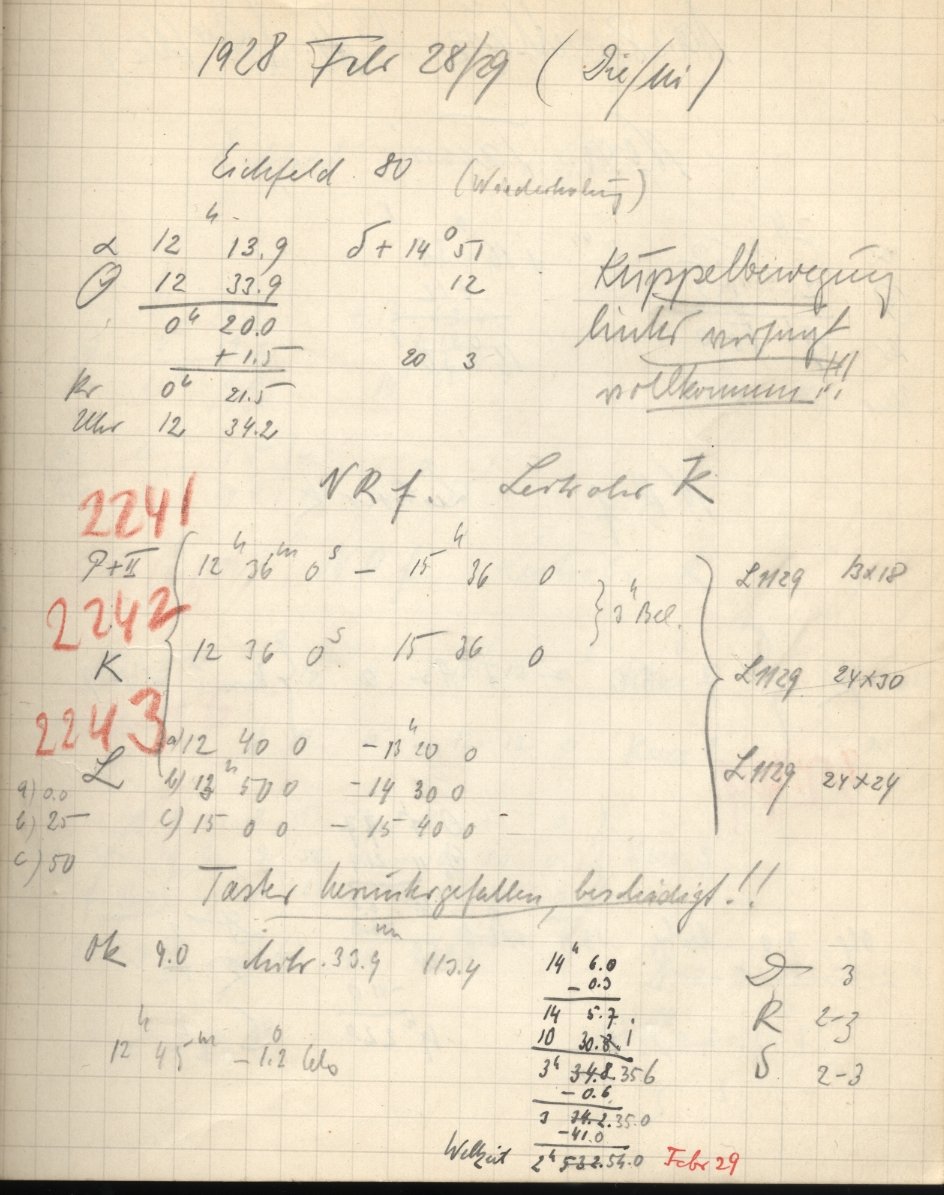 1928 Febr 28/29 (Die/Mi)
Eichfeld 80 (Wiederholung)
α 12ʰ 13.9 δ + 14° 51
Θ 12 33.9 12
0ʰ 20.0
+ 1.5 20 3
Kr 0ʰ 21.5
Uhr 12 34.2
Kuppelbewegung
linker versagt
vollkommen!!!
NRf. Leitrohr K
2241
P+II 12ʰ 36ᵐ 0ˢ — 15ʰ 36 0 3ʰ Bel. 13x18
2242
K 12 36 0ˢ 15 36 0 24x30
2243
L a) 12 40 0 - 13ʰ 20 0 24x24
b) 13ʰ 50 0 - 14 30 0
c) 15 0 0 - 15 40 0
a) 0.0
b) 25
c) 50
Taster heruntergefallen, beschädigt!!
Ok 9.0 33.9ᵐᵐ 113.4
12ʰ 45ᵐ - 1.2° Cels
14ʰ 6.0
- 0.3
14 5.7
10 30.8.1
3ʰ 34.8.35 6
- 0.6
3 34.2.35.0
- 41.0
Weltzeit 2ʰ 53.2.54.0 Febr 29
D 3
R 2-3
S 2-3